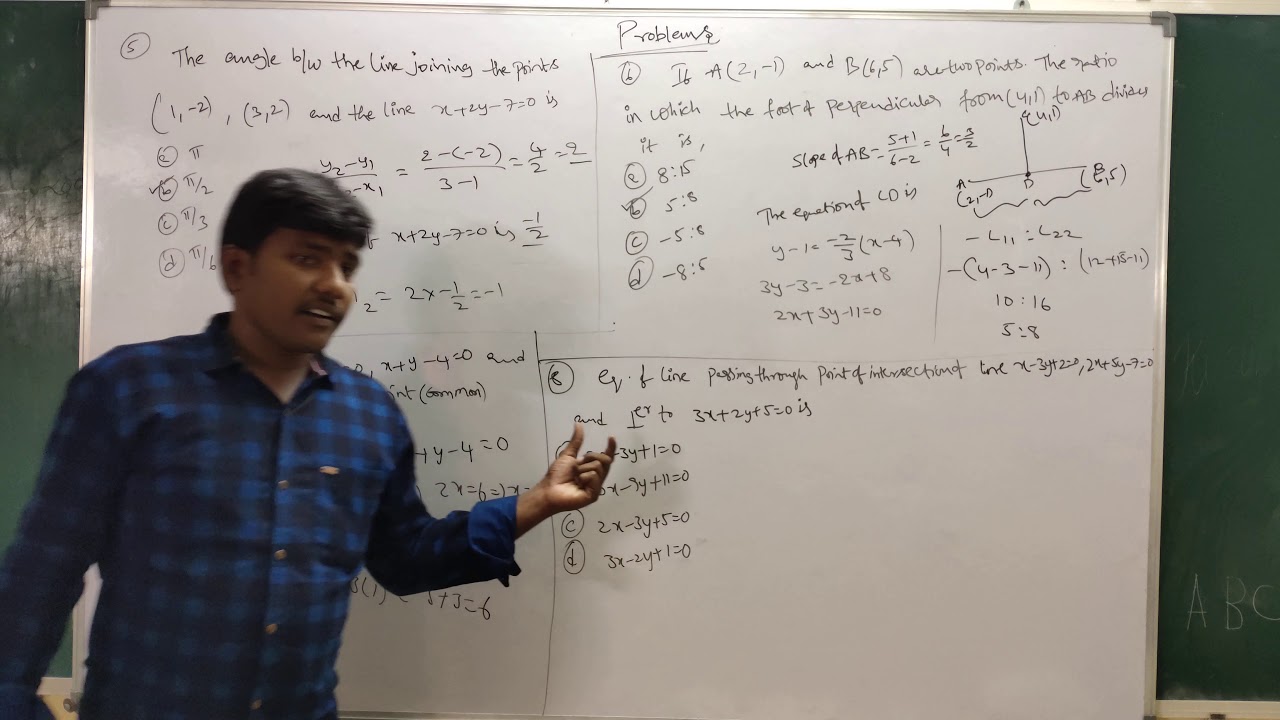 Problems
⑤ The angle b/w the line joining the points
(1,-2), (3,2) and the line x+2y-7=0 is
ⓐ π
ⓑ π/2
ⓒ π/3
ⓓ π/6
y₂-y₁ = 2-(-2) / 3-1 = 4/2 = 2
x+2y-7=0 is -1/2
= 2x-1/2 = -1
⑥ If A(2,-1) and B(6,5) are two points. The ratio
in which the foot of perpendicular from (4,1) to AB divides
it is,
ⓐ 8:15
ⓑ 5:8
ⓒ -5:8
ⓓ -8:5
Slope of AB = 5+1/6-2 = 6/4 = 3/2
The equation of CD is
y-1 = -2/3(x-4)
3y-3 = -2x+8
2x+3y-11=0
C(4,1)
A
D
B
(2,-1)
(6,5)
-L₁₁ : L₂₂
-(4-3-11) : (12+15-11)
10 : 16
5:8
x+y-4=0 and
(common)
+y-4=0
2x=6
=6
⑧ Eq. of line passing through point of intersection of line x-3y+2=0, 2x+5y-7=0
and ⊥er to 3x+2y+5=0 is
-3y+1=0
x-9y+11=0
ⓒ 2x-3y+5=0
ⓓ 3x-2y+1=0
A B C